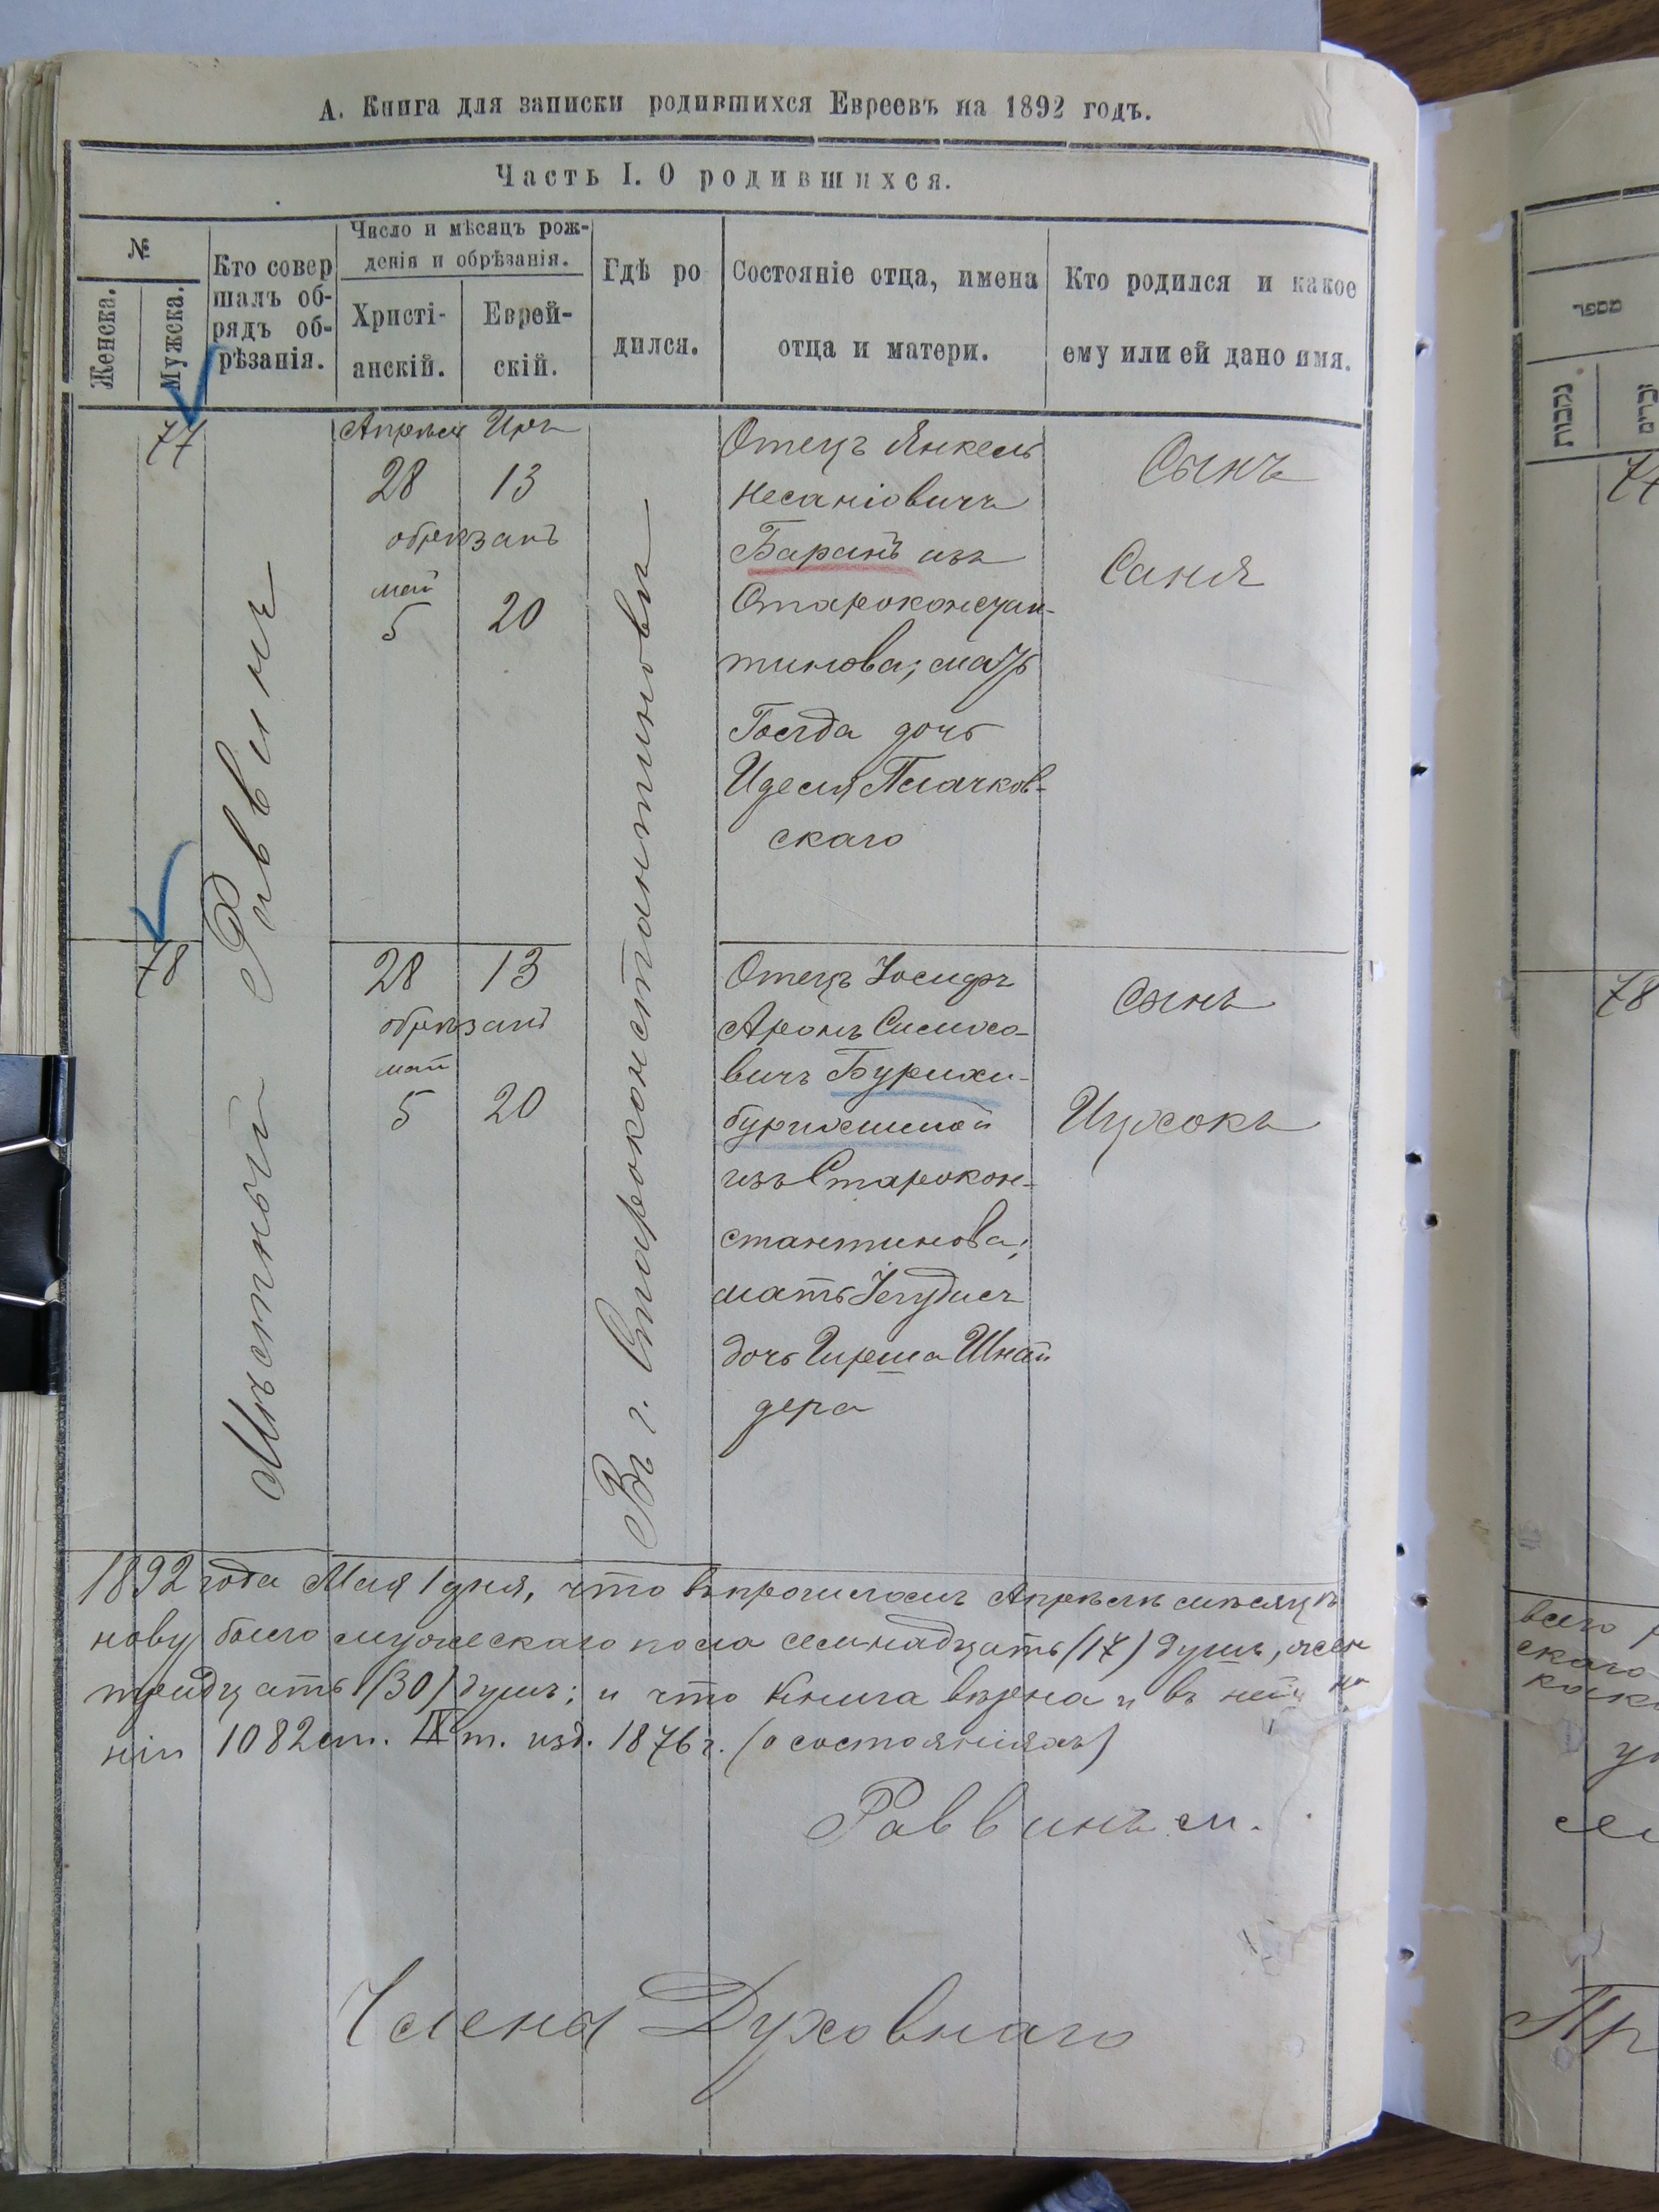 А. Книга для записки родившихся Евреевъ на 1892 годъ.
Часть I. О родившихся.
№
Женска.
Мужска.
Кто совер
шалъ об-
рядъ об-
рѣзанія.
Число и мѣсяцъ рож-
денія и обрѣзанія.
Христі-
анскій.
Еврей-
скій.
Гдѣ ро
дился.
Состояніе отца, имена
отца и матери.
Кто родился и какое
ему или ей дано имя.
77
Мѣстный Раввинъ
Апрѣля Иръ
28 13
обрѣзанъ
май
5 20
Въ г. Староконстантиновъ
Отецъ Янкель
Несаніовичъ
Баранъ изъ
Староконстан-
тинова; мать
Голда дочь
Иделя Плачков-
скаго
Сынъ
Саня
78
28 13
обрѣзанъ
май
5 20
Отецъ Іосифъ
Аронъ
вичъ
изъ Старокон-
стантинова;
мать
дочь Гирша Шнай
дера
Сынъ
Ицхокъ
1892 года Мая 1 дня, что въ прошломъ Апрѣлѣ мѣсяцѣ
нову было мужескаго пола семнадцать (17) душъ, жен
тридцать (30) душъ; и что книга вѣрна и въ ней на
ніи 1082 ст. IX т. изд. 1876 г. (о состояніяхъ)
Раввинъ м.
Члены Духовнаго
מספר
נקבות
זכרים
77
78
всего
скаго
Пр